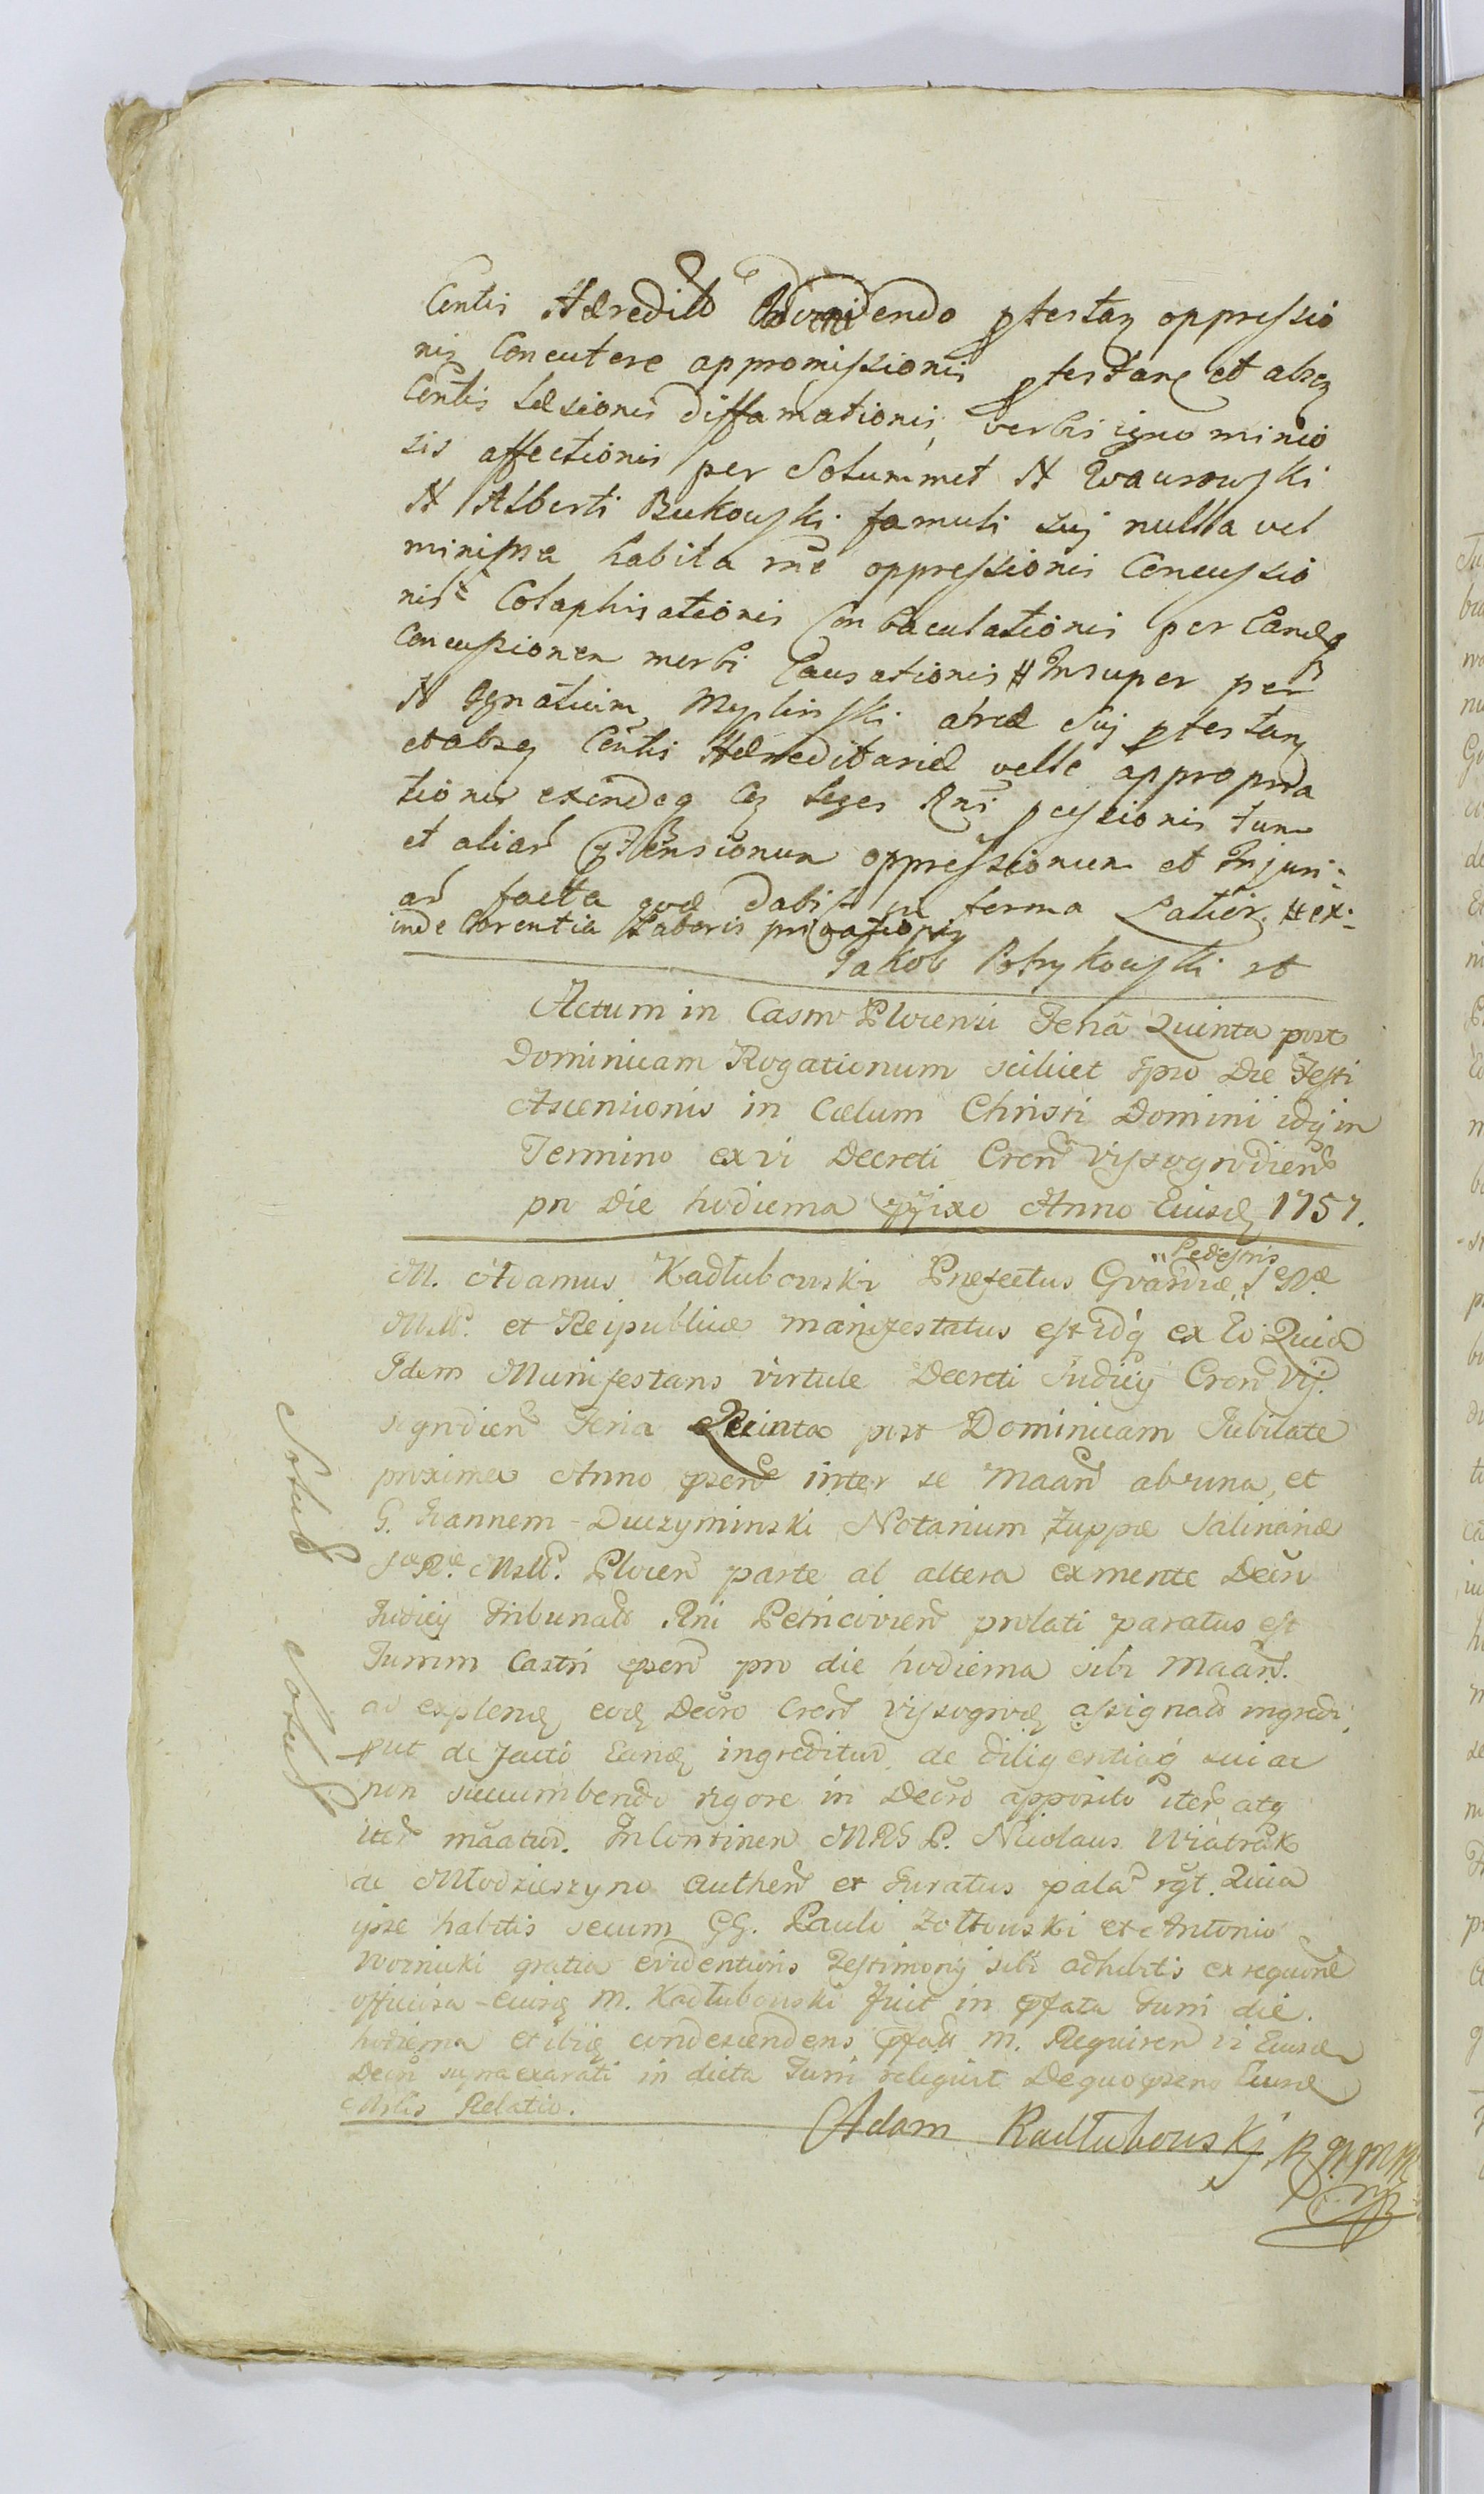 Centis Hæredit ptestaz oppressio
niz Concutere appromissionis ptestare et absq
Centis Læsionis diffamationis, verbis ignominio
sis affectionis per Solummet N Wąsrowski
N Alberti Bukowski famuli suj nulla vel
minima habita rne oppressionis Concussio
nis Colaphisationis Conbaculationis per Candq
Concussionem morbi Causationis # Insuper per
N Ignatium Myslinski abræ Suj ptestanz
et absq Centis Hæreditariæ velle appropria
tionis exindeq Cz Leges Rni pcussionis tum
et aliar ptensionum oppressionum et Injuri:
ar facta quæ dabit in forma Latiori. # ex:
inde Carentia Laboris privationis
Jakob Potrykowski
Actum in Castro Plocensi Feria Quinta post
Dominicam Rogationum scilicet ipso Die Festi
Ascensionis in Cœlum Christi Domini idq in
Termino ex vi Decreti Cren Vyssogrodien
pro Die hodierna pfixo Anno Eiusd 1757.
M. Adamus Kadłubowski Præfectus Gvardiæ "Pedestris" S. R.
Mtt. et Reipublicæ manifestatus est idq ex Eo Quia
Idem Manifestans virtute Decreti Judicij Cren Vys
sogrodien Feria Quinta post Dominicam Jubilate
proxima Anno psenti inter se Maan ab una, et
G. Joannem Duczyminski Notarium Zuppæ Salinariæ
S. R. Mtt. Plocen parte ab altera ex mente Decri
Judicij Tribunals Rni Petricovien prolati paratus est
Turrim Castri psen pro die hodierna sibi Maan.
ad explend eod Decro Cren Vyssogrod assignats ingredi,
put de facto Eand ingreditur de diligentiaq sui ac
non succumbendo rigore in Decro apposito iter atq
iter maatur. In Continen MRS P. Nicolaus Wiatrak
de Młodzieszyno authen et Juratus palam rgt. Quia
ipse habitis secum GG. Paulo Zołtowski et Antonio
Woznicki gratia evidentioris Testimonij sibi adhibitis ex requisne
officiosa eiusd M. Kadłubowski fuit in pfata turri die.
hodierna et ibid condescendens pfats M. Requiren vi Eiusd
Decri supra exarati in dicta Turri reliquit De quo psens Eiusd
Mrlis Relatio.
Adam Kadłubowskj
Solut
Notat